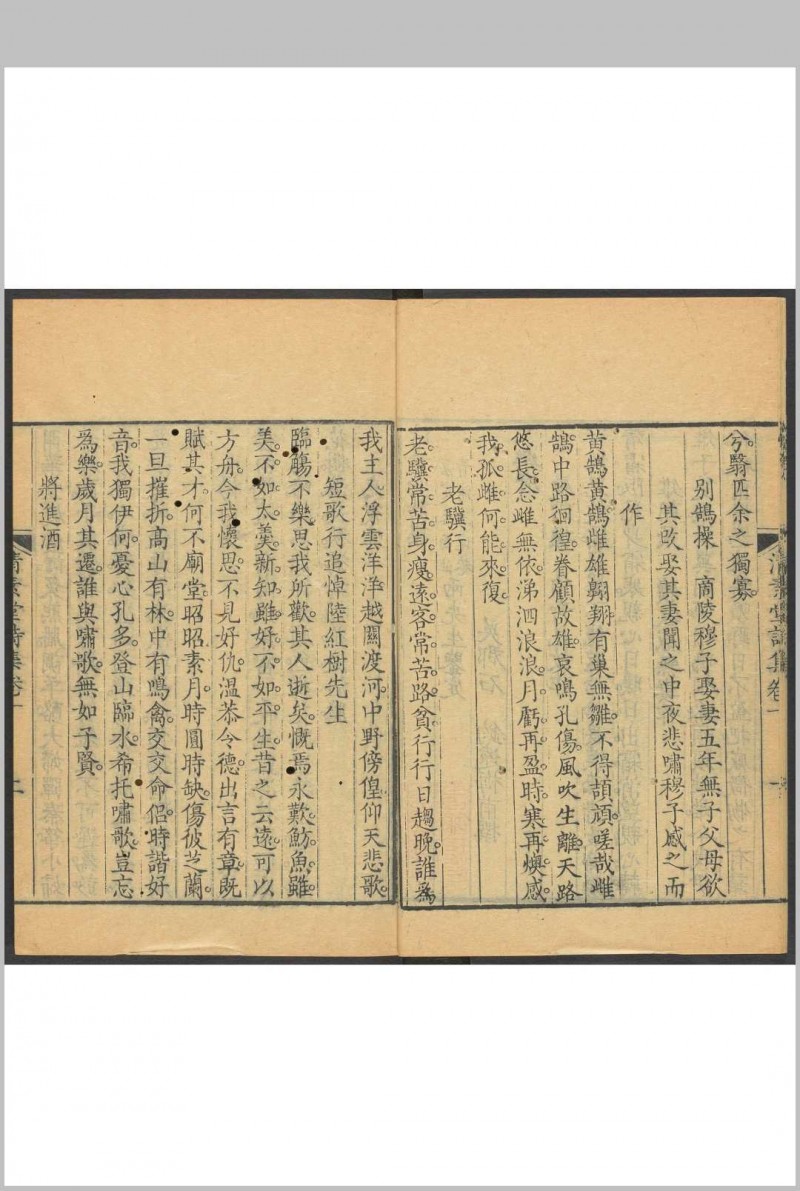 兮翳匹余之獨寡
別鵠操 商陵穆子娶妻五年無子父母欲
其改娶其妻聞之中夜悲嘯穆子感之而
作
黄鵠黄鵠雌雄翱翔有巢無雛不得頡頏嗟哉雌
鵠中路徊徨眷顧故雄哀鳴孔傷風吹生離天路
悠長念雌無依涕泗浪浪月虧再盈時寒再燠感
我孤雌何能來復
老驥行
老驥常苦身瘦遠客常苦路貧行行日趨晚誰為
清素堂詩集卷一 一
我主人浮雲洋洋越關渡河中野傍偟仰天悲歌
短歌行追悼陸紅樹先生
臨觴不樂思我所歡其人逝矣慨焉永歎魴魚雖
美不如太羮新知雖好不如平生昔之云遠可以
方舟今我懷思不見好仇溫恭令德出言有章既
賦其才何不廟堂昭昭素月時圓時缺傷彼芝蘭
一旦摧折高山有林中有鳴禽交交命侶時諧好
音我獨伊何憂心孔多登山臨水希托嘯歌豈忘
為樂歲月其遷誰與嘯歌無如子賢
將進酒
清素堂詩集卷一 二